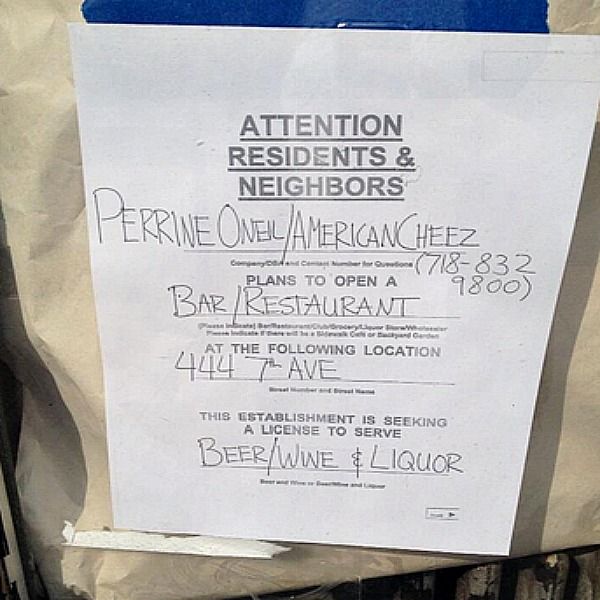 ATTENTION
RESIDENTS &
NEIGHBORS
PERRINE ONEIL/AMERICANCHEEZ
Company/DBA and Contact Number for Questions (718-832
9800)
PLANS TO OPEN A
BAR/RESTAURANT
(Please Indicate) Bar/Restaurant/Club/Grocery/Liquor Store/Wholesaler
Please Indicate if there will be a Sidewalk Cafe or Backyard Garden
AT THE FOLLOWING LOCATION
444 7th AVE
Street Number and Street Name
THIS ESTABLISHMENT IS SEEKING
A LICENSE TO SERVE
BEER/WINE & LIQUOR
Beer and Wine or Beer/Wine and Liquor